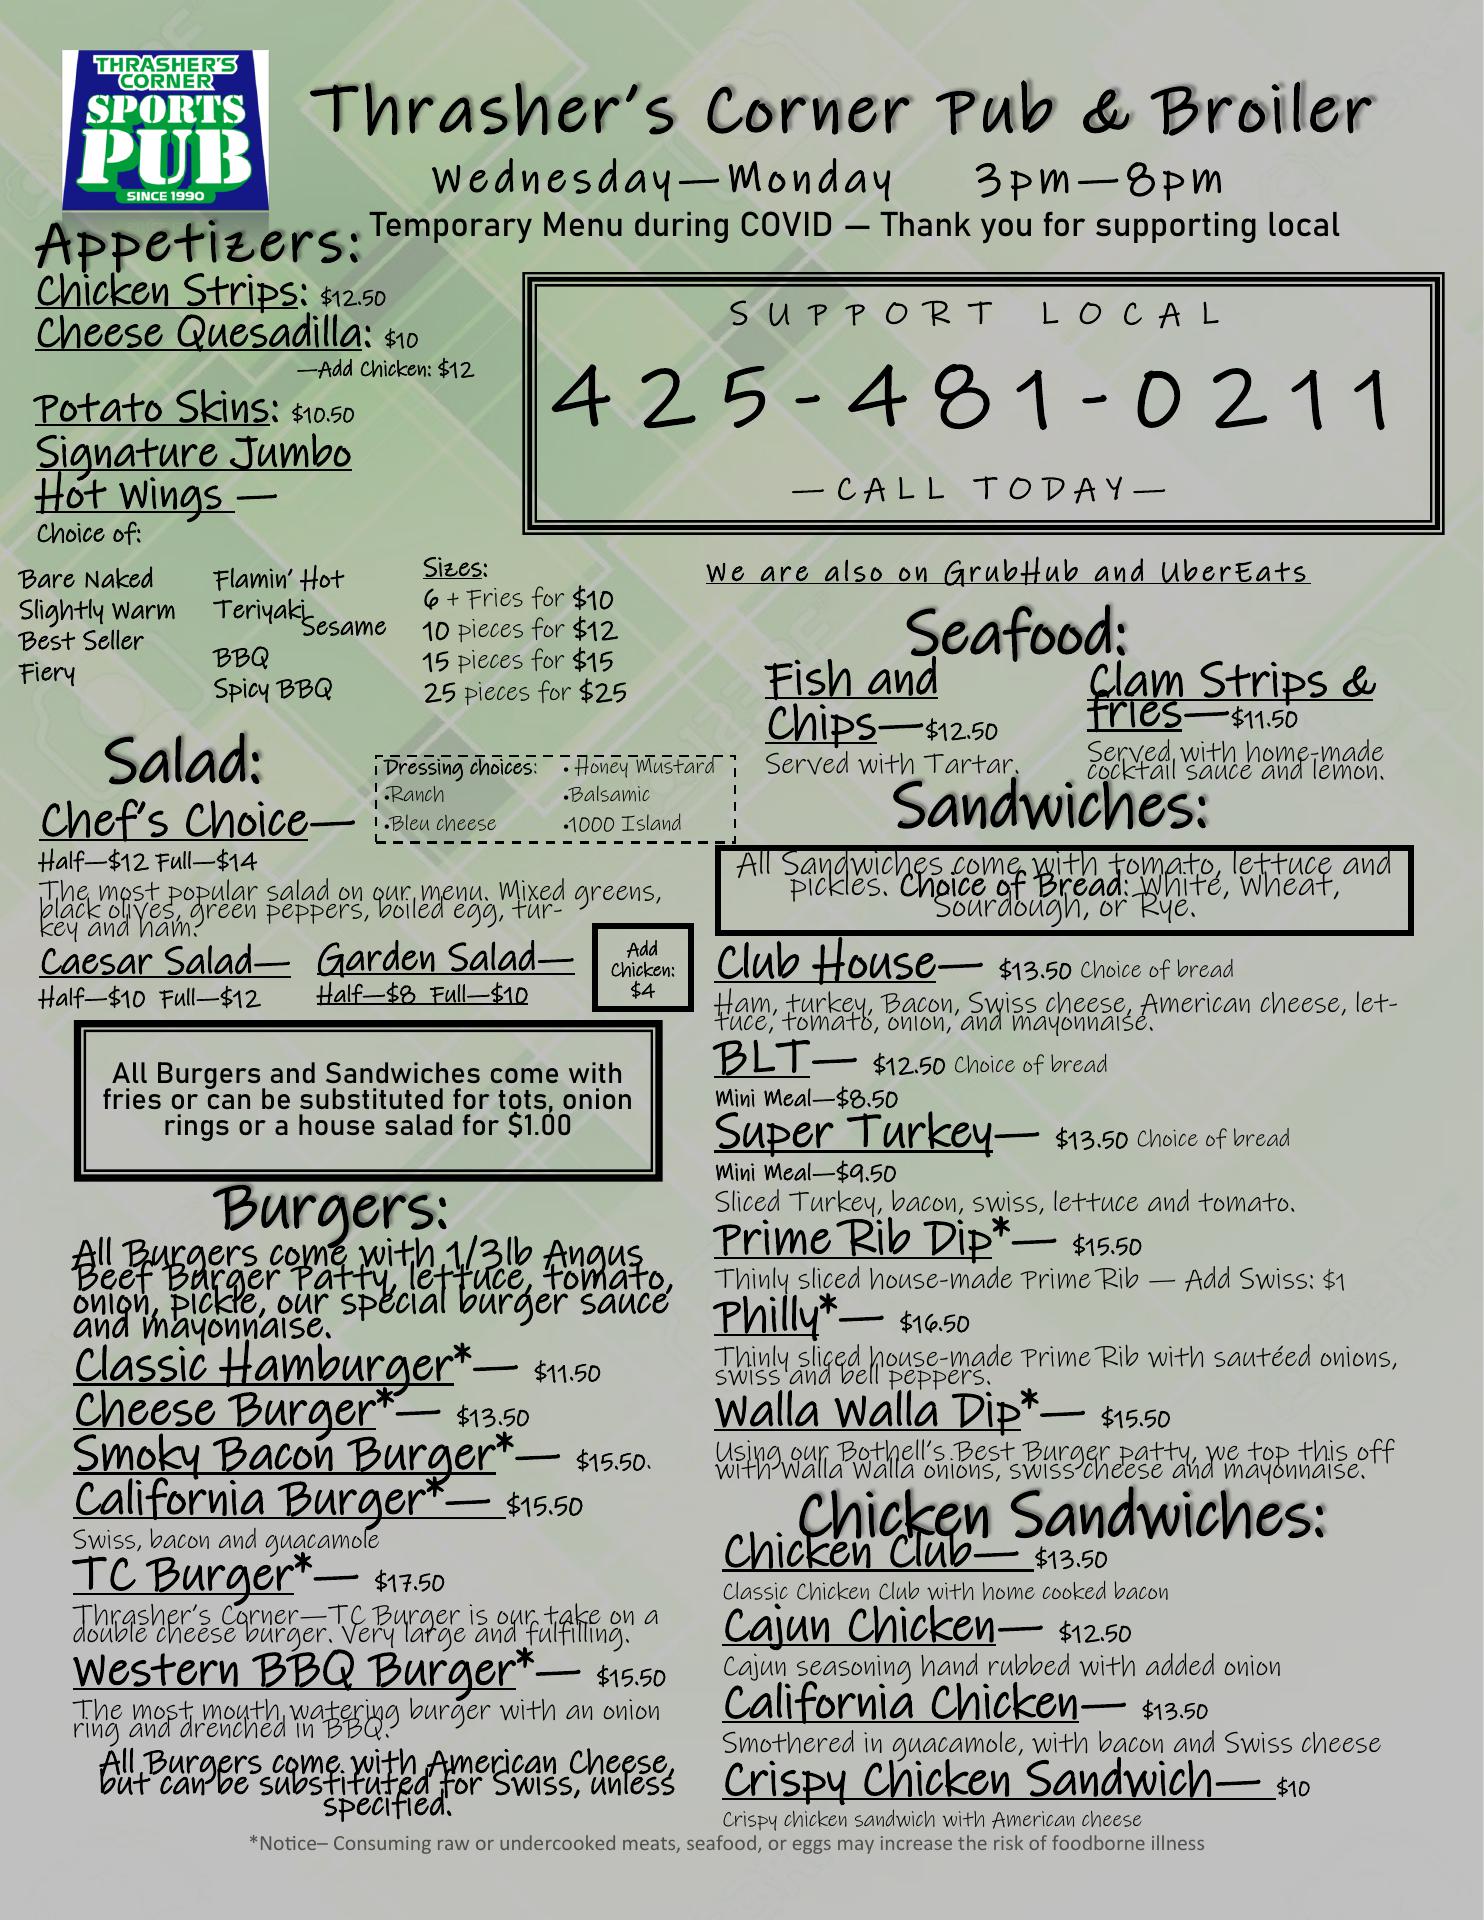 THRASHER'S
CORNER
SPORTS
PUB
SINCE 1990
Thrasher's Corner Pub & Broiler
Wednesday—Monday 3pm—8pm
Temporary Menu during COVID — Thank you for supporting local
Appetizers:
Chicken Strips: $12.50
Cheese Quesadilla: $10
—Add Chicken: $12
Potato Skins: $10.50
Signature Jumbo
Hot Wings —
Choice of:
Bare Naked
Slightly Warm
Best Seller
Fiery
Flamin' Hot
Teriyaki
Sesame
BBQ
Spicy BBQ
Sizes:
6 + Fries for $10
10 pieces for $12
15 pieces for $15
25 pieces for $25
SUPPORT LOCAL
425-481-0211
—CALL TODAY—
We are also on GrubHub and UberEats
Seafood:
Fish and
Chips—$12.50
Served with Tartar.
Clam Strips &
fries—$11.50
Served with home-made
cocktail sauce and lemon.
Salad:
Dressing choices:
•Ranch
•Bleu cheese
• Honey Mustard
•Balsamic
•1000 Island
Chef's Choice—
Half—$12 Full—$14
The most popular salad on our menu. Mixed greens,
black olives, green peppers, boiled egg, tur-
key and ham.
Caesar Salad—
Half—$10 Full—$12
Garden Salad—
Half—$8 Full—$10
Add
Chicken:
$4
All Burgers and Sandwiches come with
fries or can be substituted for tots, onion
rings or a house salad for $1.00
Burgers:
All Burgers come with 1/3lb Angus
Beef Burger Patty, lettuce, tomato,
onion, pickle, our special burger sauce
and mayonnaise.
Classic Hamburger*— $11.50
Cheese Burger*— $13.50
Smoky Bacon Burger*— $15.50.
California Burger*— $15.50
Swiss, bacon and guacamole
TC Burger*— $17.50
Thrasher's Corner—TC Burger is our take on a
double cheese burger. Very large and fulfilling.
Western BBQ Burger*— $15.50
The most mouth watering burger with an onion
ring and drenched in BBQ.
All Burgers come with American Cheese,
but can be substituted for Swiss, unless
specified.
Sandwiches:
All Sandwiches come with tomato, lettuce and
pickles. Choice of Bread: White, Wheat,
Sourdough, or Rye.
Club House— $13.50 Choice of bread
Ham, turkey, Bacon, Swiss cheese, American cheese, let-
tuce, tomato, onion, and mayonnaise.
BLT— $12.50 Choice of bread
Mini Meal—$8.50
Super Turkey— $13.50 Choice of bread
Mini Meal—$9.50
Sliced Turkey, bacon, swiss, lettuce and tomato.
Prime Rib Dip*— $15.50
Thinly sliced house-made Prime Rib — Add Swiss: $1
Philly*— $16.50
Thinly sliced house-made Prime Rib with sautéed onions,
swiss and bell peppers.
Walla Walla Dip*— $15.50
Using our Bothell's Best Burger patty, we top this off
with Walla Walla onions, swiss cheese and mayonnaise.
Chicken Sandwiches:
Chicken Club— $13.50
Classic Chicken Club with home cooked bacon
Cajun Chicken— $12.50
Cajun seasoning hand rubbed with added onion
California Chicken— $13.50
Smothered in guacamole, with bacon and Swiss cheese
Crispy Chicken Sandwich— $10
Crispy chicken sandwich with American cheese
*Notice– Consuming raw or undercooked meats, seafood, or eggs may increase the risk of foodborne illness